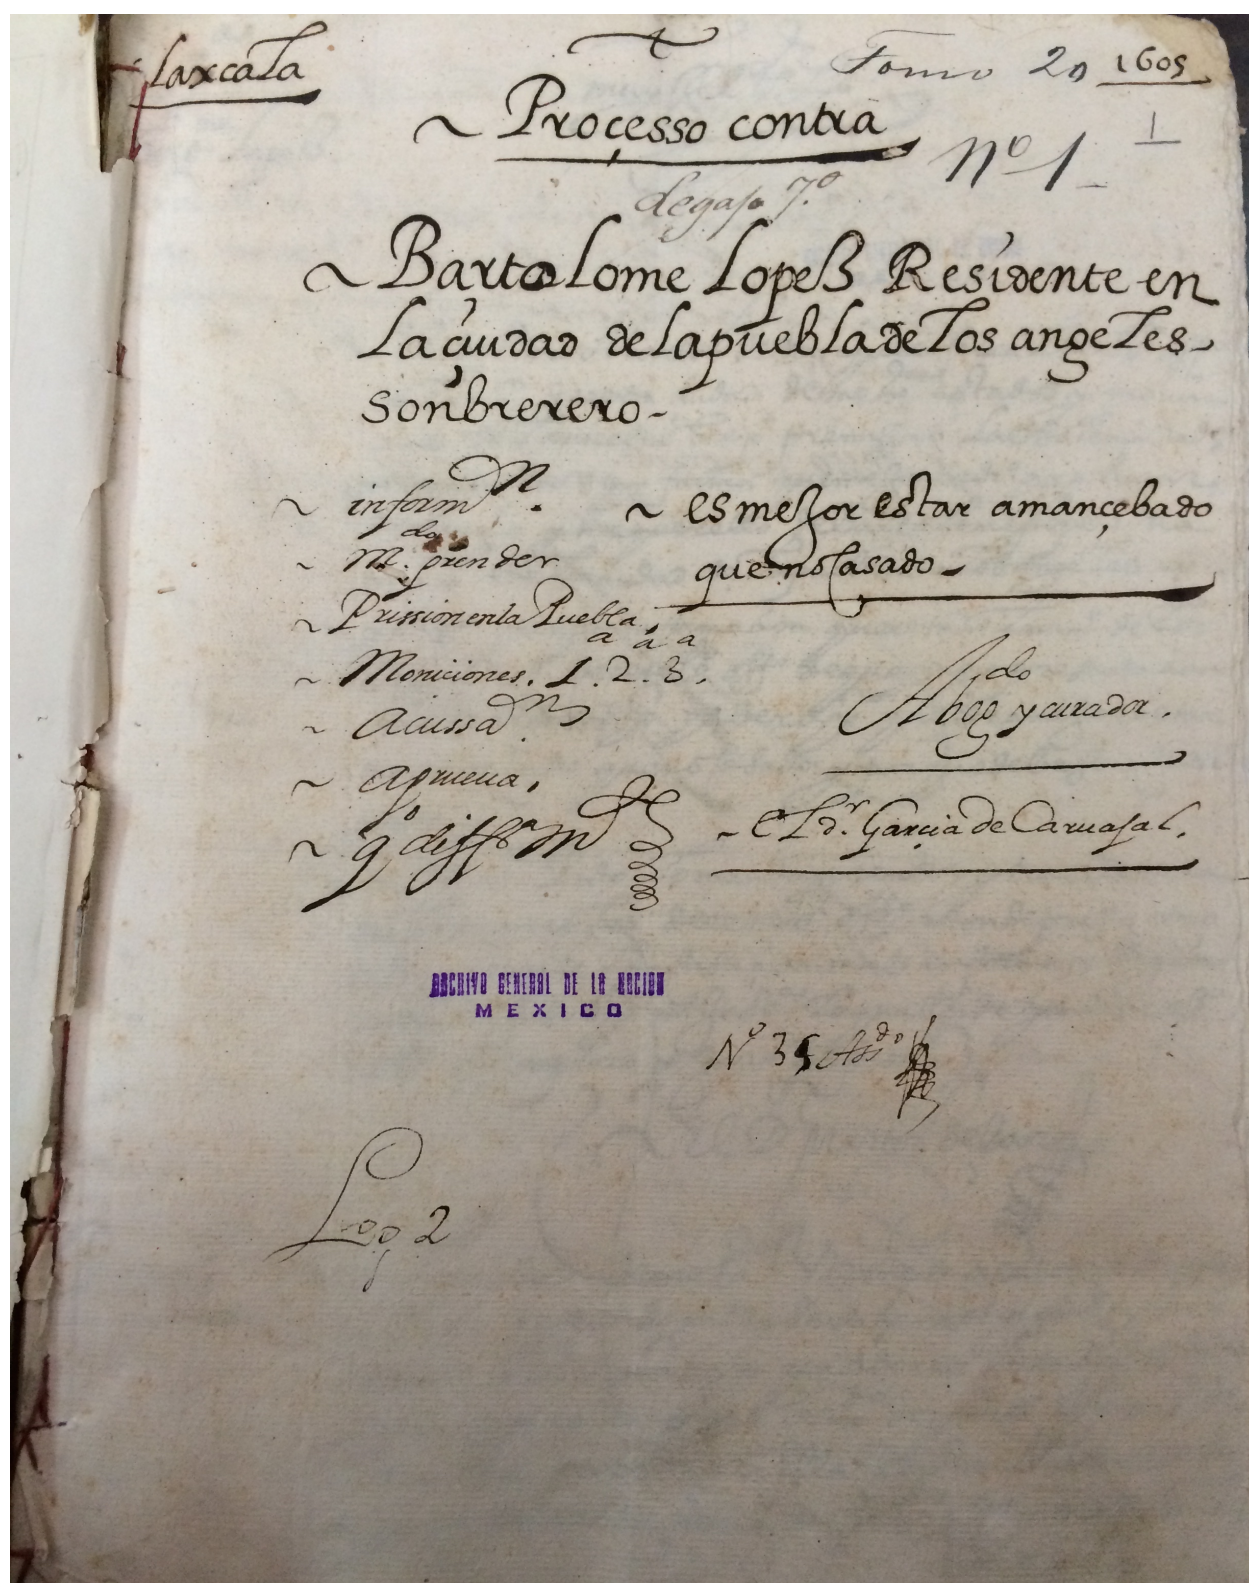 laxcala
Tomo 20 1605
Processo contra
Nº 1
1
Legajo 7.º
Bartolome Lopeß Residente en
La çiudad de la puebla de los angeles
sonbrerero
informⁿ.
M.do prender
Prission en la Puebla.
Moniciones. 1.a 2.a 3.a
Acussaⁿ.
Aprueua.
es mejor estar amançebado
que no casado
Abogdo y curador.
el dr. Garçia de Caruajal.
ARCHIVO GENERAL DE LA NACION
MEXICO
Nº 35
2